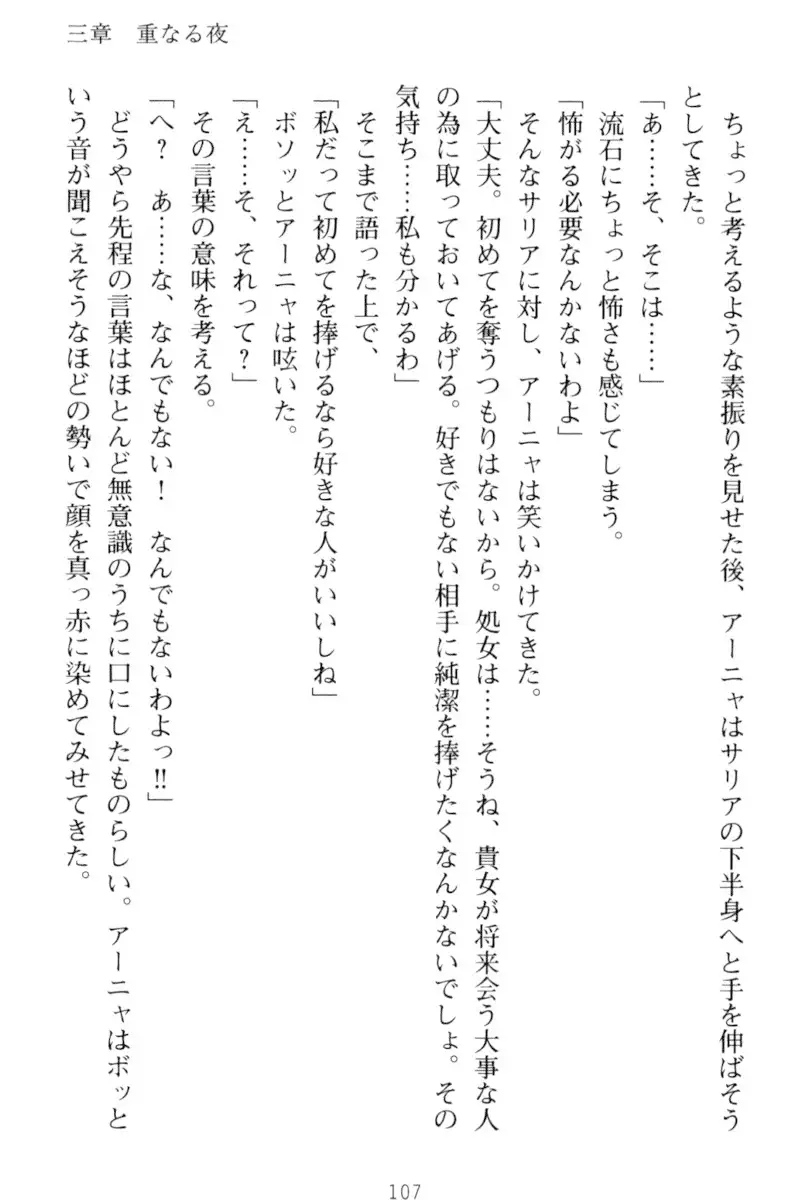 三章　重なる夜
　ちょっと考えるような素振りを見せた後、アーニャはサリアの下半身へと手を伸ばそう
としてきた。
「あ……そ、そこは……」
　流石にちょっと怖さも感じてしまう。
「怖がる必要なんかないわよ」
　そんなサリアに対し、アーニャは笑いかけてきた。
「大丈夫。初めてを奪うつもりはないから。処女は……そうね、貴女が将来会う大事な人
の為に取っておいてあげる。好きでもない相手に純潔を捧げたくなんかないでしょ。その
気持ち……私も分かるわ」
　そこまで語った上で、
「私だって初めてを捧げるなら好きな人がいいしね」
　ボソッとアーニャは呟いた。
「え……そ、それって？」
　その言葉の意味を考える。
「へ？　あ……な、なんでもない！　なんでもないわよっ!!」
　どうやら先程の言葉はほとんど無意識のうちに口にしたものらしい。アーニャはボッと
いう音が聞こえそうなほどの勢いで顔を真っ赤に染めてみせてきた。
107